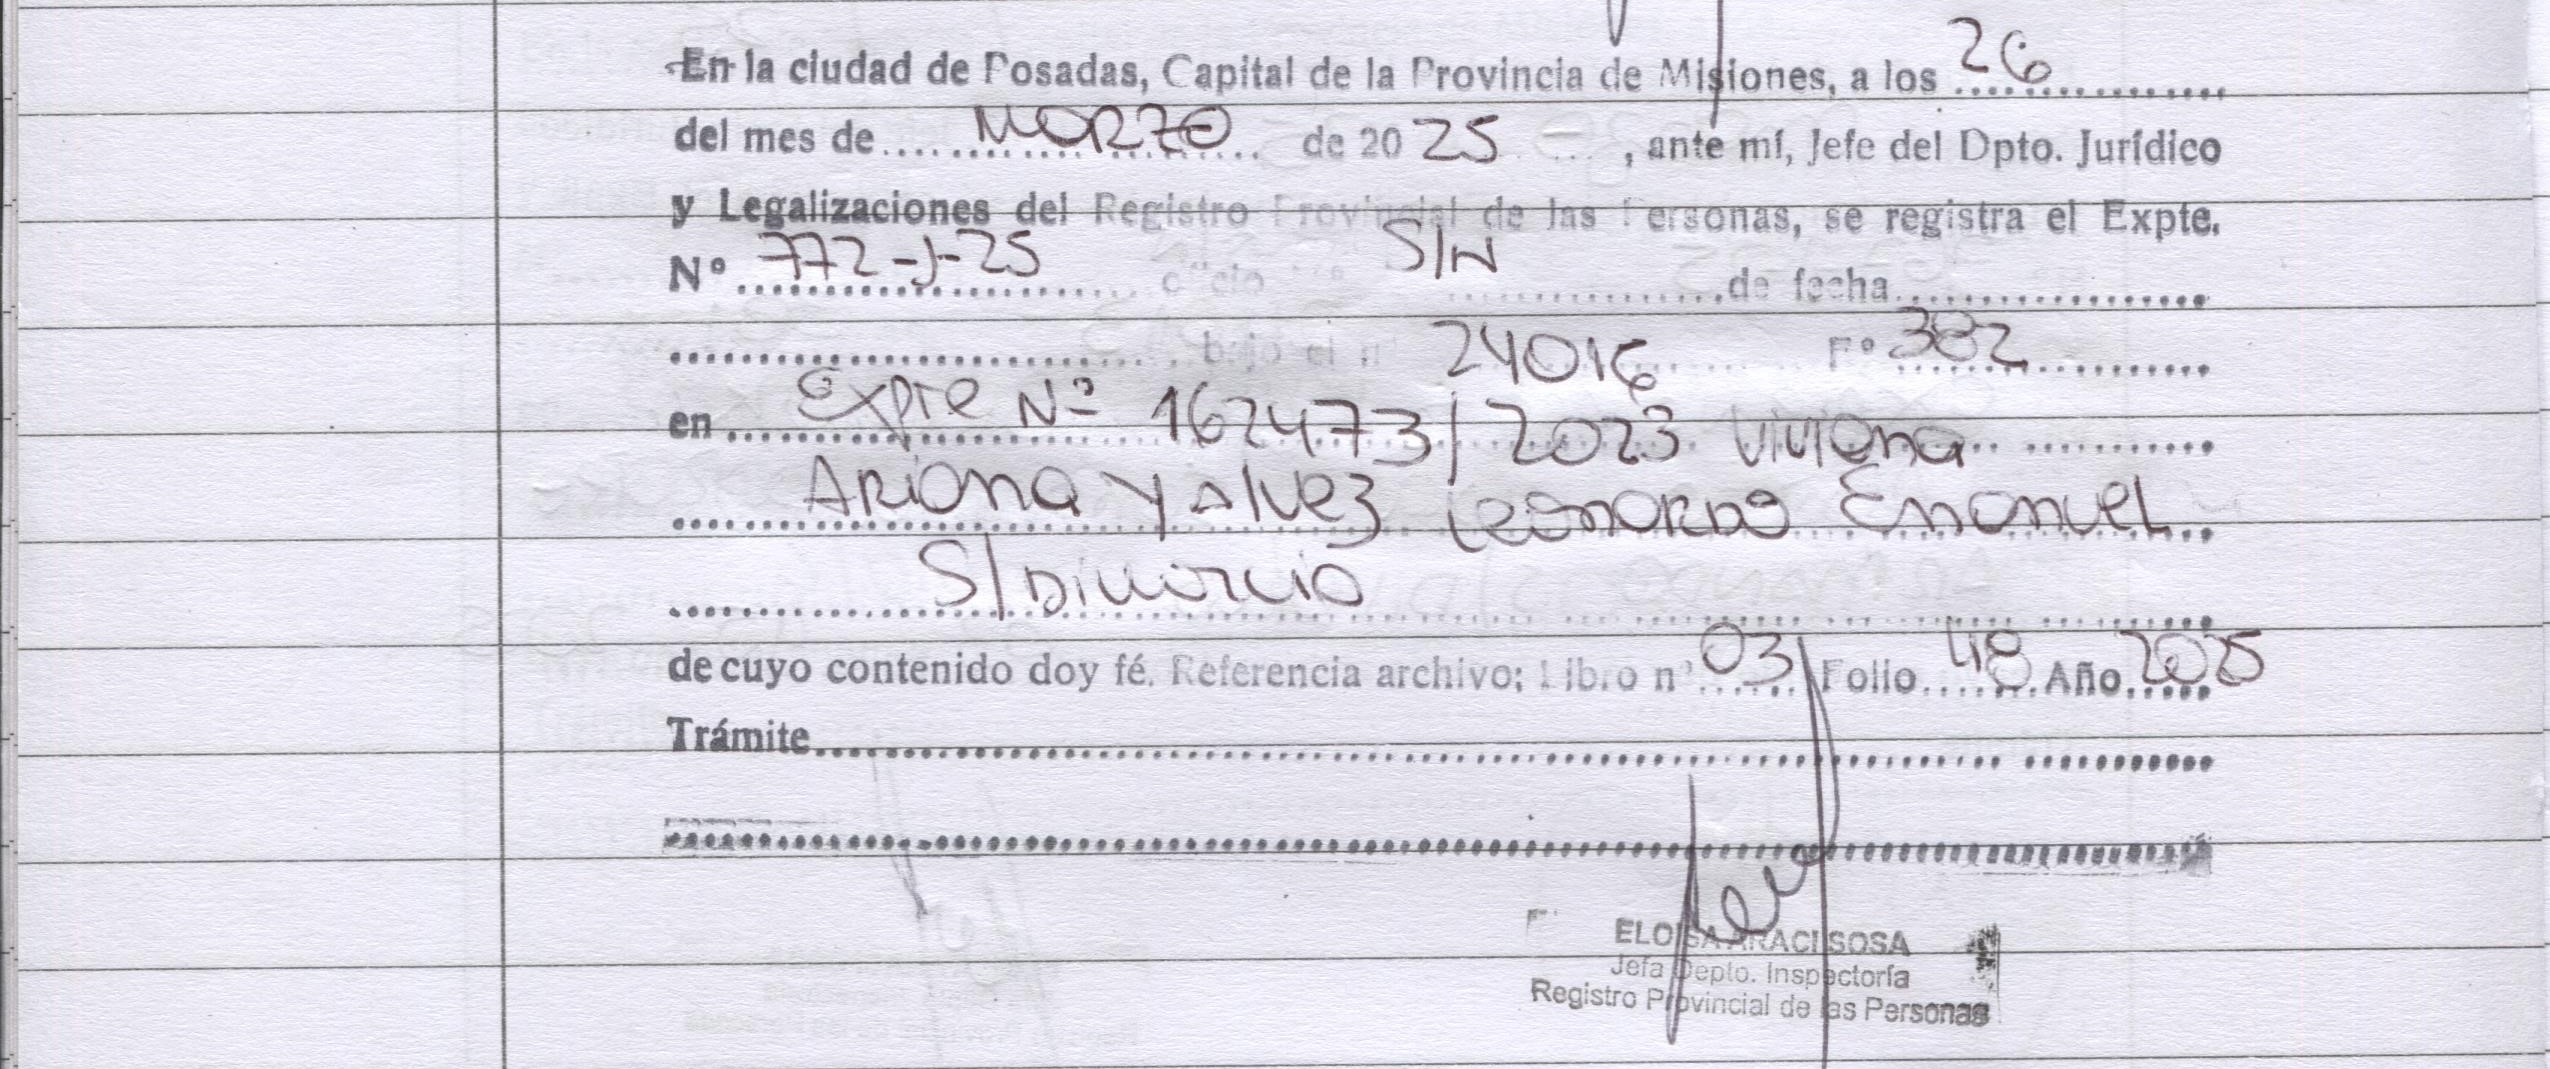 En la ciudad de Posadas, Capital de la Provincia de Misiones, a los 26
del mes de MARZO de 20 25, ante mí, Jefe del Dpto. Jurídico
y Legalizaciones del Registro Provincial de las Personas, se registra el Expte.
Nº 772-J-25 oficio Nº S/N de fecha
bajo el nº 24016 Fº 382
en Expte Nº 162473/2023 Viviana
Ariana y Alvez Leonardo Emanuel
S/Divorcio
de cuyo contenido doy fé. Referencia archivo; Libro nº 03 Folio 48 Año 2025
Trámite
ELOISA ARACI SOSA
Jefa Depto. Inspectoría
Registro Provincial de las Personas